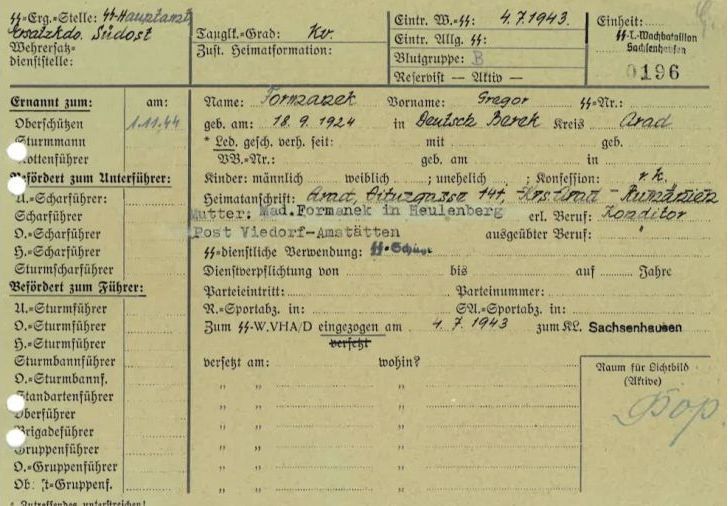 SS-Erg.=Stelle: SS-Hauptamt
Ersatzkdo. Südost
Wehrersatz=
dienststelle:
Tauglk.=Grad: Kv.
Zust. Heimatformation:
Eintr. W.=SS: 4.7.1943.
Eintr. Allg. SS:
Blutgruppe: B
Reservist — Aktiv —
Einheit:
SS-T.-Wachbataillon
Sachsenhausen
0196
Ernannt zum: am:
Oberschützen 1.11.44
Sturmmann
Rottenführer
Befördert zum Unterführer:
U.=Scharführer:
Scharführer
O.=Scharführer
H.=Scharführer
Sturmscharführer
Befördert zum Führer:
U.=Sturmführer
O.=Sturmführer
H.=Sturmführer
Sturmbannführer
O.=Sturmbannf.
Standartenführer
Oberführer
Brigadeführer
Gruppenführer
O.=Gruppenführer
Ob. st=Gruppenf.
* Zutreffendes unterstreichen!
Name: Formanek Vorname: Gregor SS=Nr.:
geb. am: 18.9.1924 in Deutsch Berek Kreis Arad
* Led. gesch. verh. seit: mit geb.
VB.=Nr.: geb. am in
Kinder: männlich weiblich ; unehelich ; Konfession: r.k.
Heimatanschrift: Arad, 141, Krs. Arad - Rumänien
Mutter: Mad.Formanek in Heulenberg erl. Beruf: Konditor
Post Viedorf-Amstätten ausgeübter Beruf: "
SS=dienstliche Verwendung: SS-Schütze
Dienstverpflichtung von bis auf Jahre
Parteieintritt: Parteinummer:
R.=Sportabz. in: SA.=Sportabz. in
Zum SS-W.VHA/D eingezogen am 4.7.1943 zum KL. Sachsenhausen
versetzt
versetzt am: wohin?
" " "
" " "
" " "
" " "
" " "
" " "
Raum für Lichtbild
(Aktive)